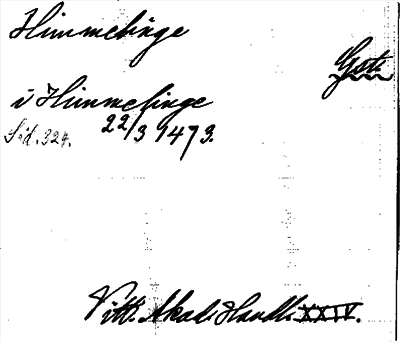 Himmelinge
Gotl.
i Himmelinge
22/3 1473.
Sid. 324.
Vitt. Akad. Handl. XXIV.